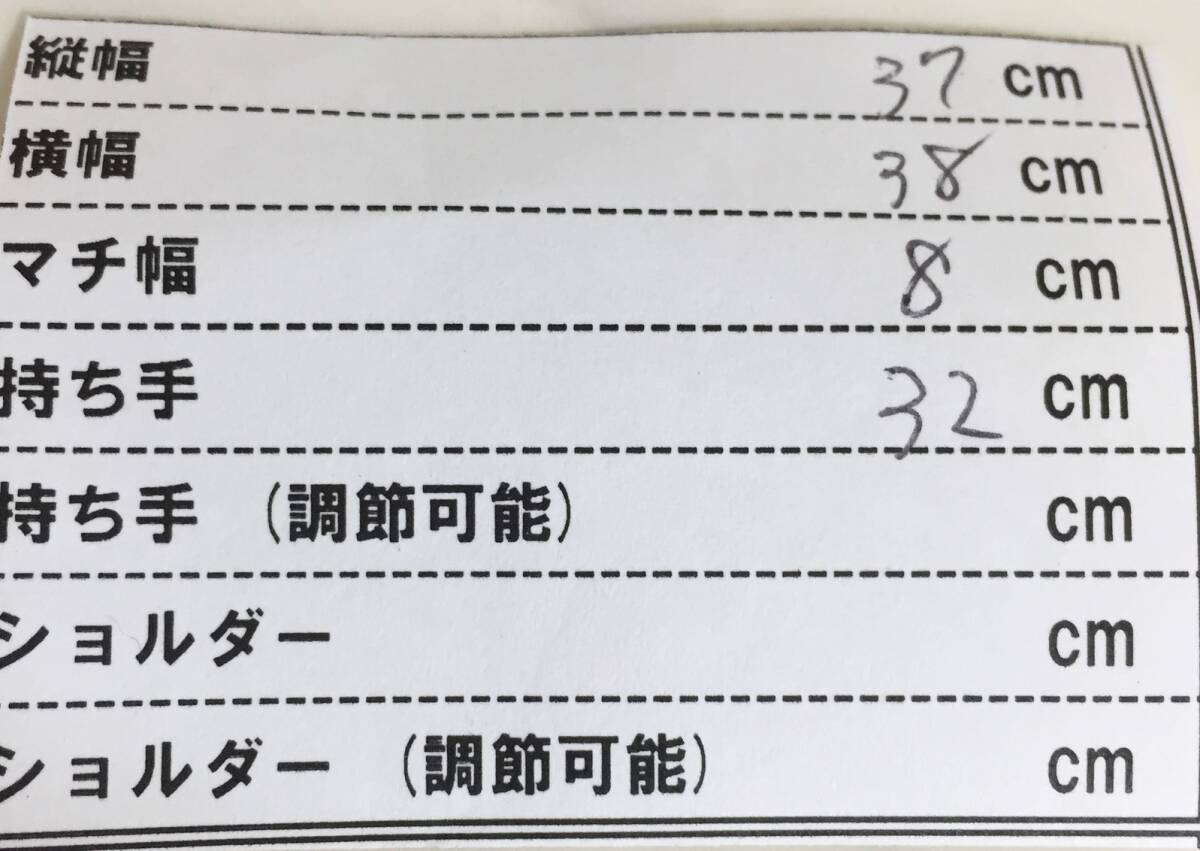 縦幅 37 cm
横幅 38 cm
マチ幅 8 cm
持ち手 32 cm
持ち手 (調節可能) cm
ショルダー cm
ショルダー (調節可能) cm